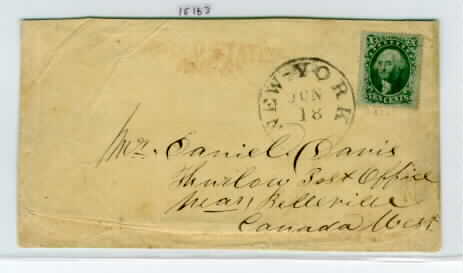 15183
NEW-YORK
JUN
18
TEN CENTS
Mr. Daniel Davis
Thurlow Post Office
near Belleville
Canada West